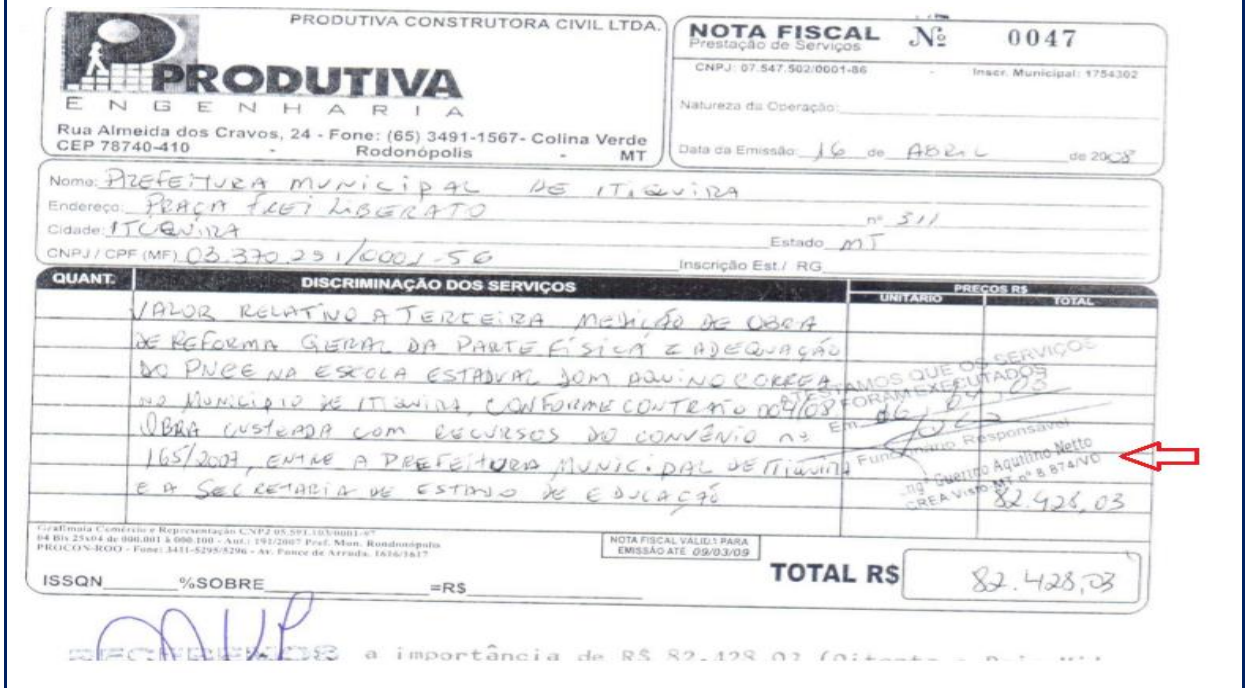 PRODUTIVA CONSTRUTORA CIVIL LTDA.
PRODUTIVA
ENGENHARIA
Rua Almeida dos Cravos, 24 - Fone: (65) 3491-1567- Colina Verde
CEP 78740-410 - Rodonópolis - MT
NOTA FISCAL Nº 0047
Prestação de Serviços
CNPJ: 07.547.502/0001-86 - Inscr. Municipal: 1754302
Natureza da Operação:
Data da Emissão: 16 de ABRIL de 2008
Nome: PREFEITURA MUNICIPAL DE ITIQUIRA
Endereço: PRAÇA FREI LIBERATO nº 311
Cidade: ITIQUIRA Estado MT
CNPJ / CPF (MF) 03.370.251/0001-56 Inscrição Est./ RG
QUANT. DISCRIMINAÇÃO DOS SERVIÇOS PREÇOS R$
UNITÁRIO TOTAL
VALOR RELATIVO A TERCEIRA MEDIÇÃO DE OBRA
DE REFORMA GERAL DA PARTE FÍSICA E ADEQUAÇÃO
DO PNEE NA ESCOLA ESTADUAL DOM AQUINO CORREA
NO MUNICIPIO DE ITIQUIRA, CONFORME CONTRATO 004/08
OBRA CUSTEADA COM RECURSOS DO CONVÊNIO nº
165/2007, ENTRE A PREFEITURA MUNICIPAL DE ITIQUIRA
E A SECRETARIA DE ESTADO DE EDUCAÇÃO 82.428,03
ATESTAMOS QUE OS SERVIÇOS
FORAM EXECUTADOS
Em
Funcionário Responsável
Engº Guerino Aquilino Netto
CREA Visto-MT nº 8.874/VD
Grafimaia Comércio e Representação
04 Bls 25x04 de 000.001 à 000.100 - Aut.: 191/2007 Pref. Mun. Rondonópolis
PROCON-ROO - Fone: 3411-5295/5296 - Av. Ponce de Arruda, 1616/1617
NOTA FISCAL VÁLIDA PARA
EMISSÃO ATÉ 09/03/09
TOTAL R$ 82.428,03
ISSQN %SOBRE =R$
RECEBEMOS a importância de R$ 82.428,03